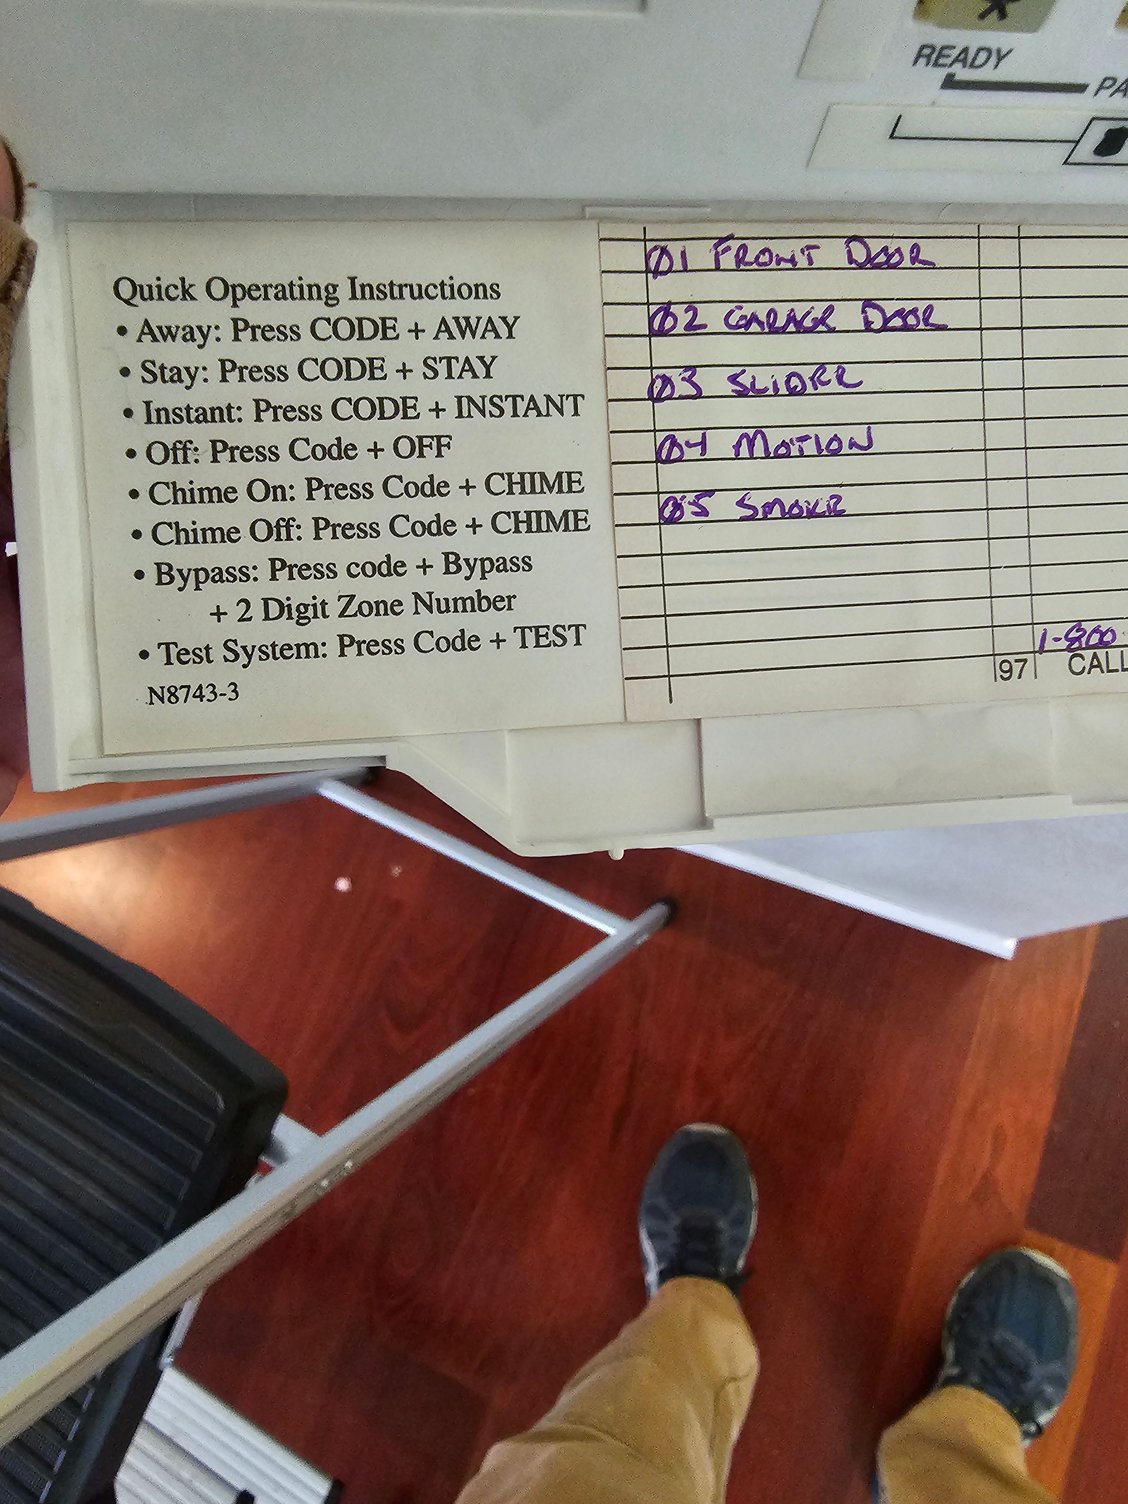 *
READY
PA
Quick Operating Instructions
• Away: Press CODE + AWAY
• Stay: Press CODE + STAY
• Instant: Press CODE + INSTANT
• Off: Press Code + OFF
• Chime On: Press Code + CHIME
• Chime Off: Press Code + CHIME
• Bypass: Press code + Bypass
+ 2 Digit Zone Number
• Test System: Press Code + TEST
N8743-3
01 FRONT DOOR
02 GARAGE DOOR
03 SLIDER
04 MOTION
05 SMOKE
1-800
97 CALL